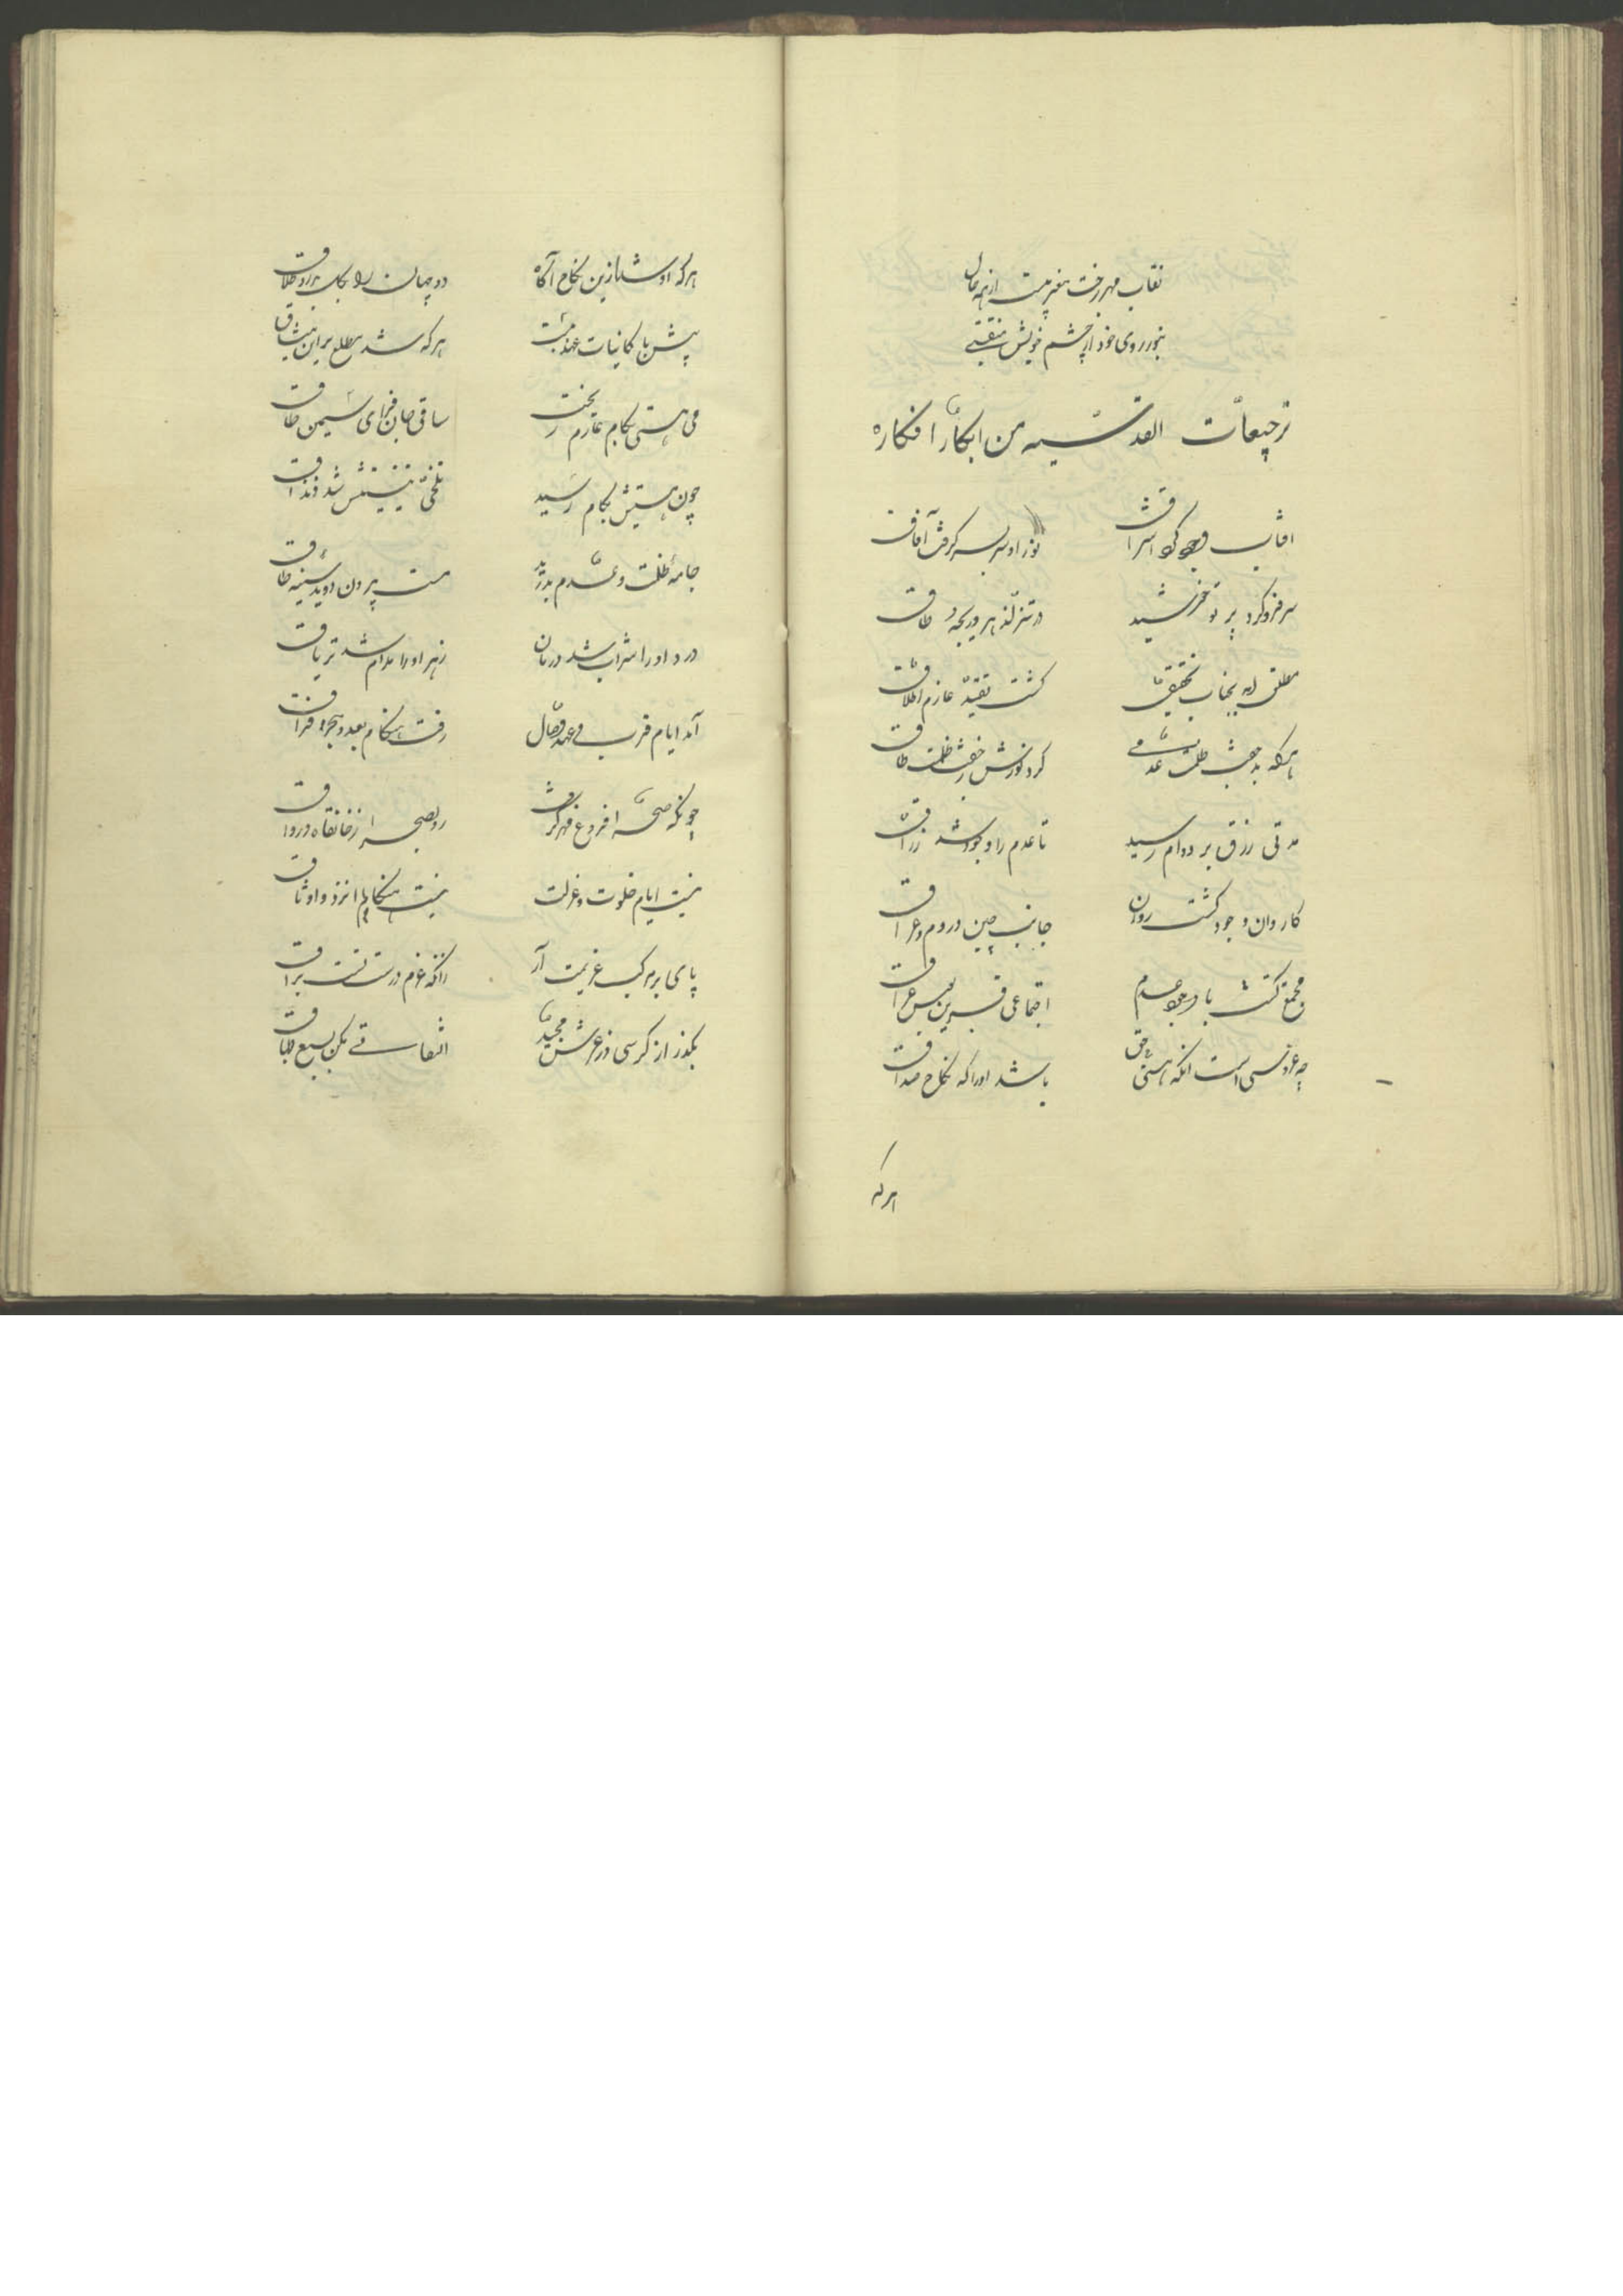 نقاب مهر رخت مغربیست از همه حال
بنور روی خود از چشم خویش منتقبی
ترجیعات القدسیه من ابکار افکاره
افتاب وجود کرد اشراق
نور او سر بسر کرفت آفاق
سر فرو کرد پرتو خورشید
در تنزل ز هر دریجه و طاق
مطلق
کشت تقید عازم اطلاق
هرکه
کرد نورش
مدتی رزق بر دوام رسید
تا عدم را وجود شد رزاق
کاروان وجود کشت روان
جانب چین و روم و عراق
مجمع کشت با وجود عدم
اجتماعی قرین
چه عروسی است انکه هستی حق
باشد او را که نکاح صداق
هرکه
هرکه او شد ازین نکاح آکاه
دو جهان را بکل بداد طلاق
پیش با کاینات عهد نبست
هرکه شد مطلع برین میثاق
می هستی بکام عازم ریخت
ساقی جان فزای سیمین ساق
چون هستیش بکام رسید
تلخی نیستیش شد ز مذاق
جامه ظلمت و عدم بدرید
مست بیرون دوید
درد او را شراب شد درمان
زهر او را مدام شد تریاق
آمد ایام قرب و عهد وصال
رفت هنکام بعد و هجر و فراق
چونکه صحرا فروغ مهر کرفت
رو بصحرا ز خانقاه و رواق
نیست ایام خلوت و عزلت
نیست هنکام انزوا و وثاق
پای بر مرکب عزیمت آر
زانکه عزم درست تست براق
بکذر از کرسی و ز عرش مجید
التفاتی مکن بسبع طباق